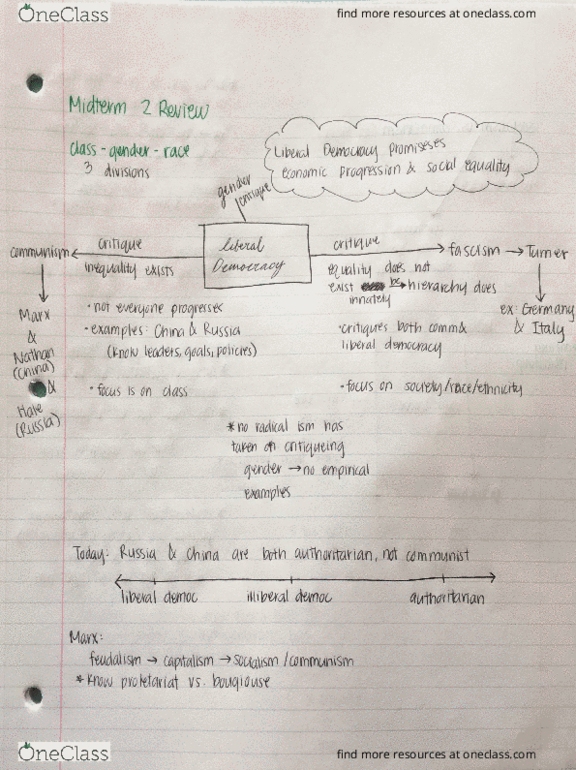 OneClass
find more resources at oneclass.com
Midterm 2 Review
class - gender - race
3 divisions
Liberal Democracy promiseses
economic progression & social equality
gender
critique
communism
critique
inequality exists
liberal
Democracy
critique
equality does not
exist bc → hierarchy does
innately
fascism → Turner
ex: Germany
& Italy
Marx
&
Nathan
(China)
&
Hale
(Russia)
• not everyone progresses
• examples: China & Russia
(know leaders, goals, policies)
• focus is on class
• critiques both comm &
liberal democracy
• focus on society/race/ethnicity
* no radical ism has
taken on critiqueing
gender → no empirical
examples
Today: Russia & China are both authoritarian, not communist
liberal democ illiberal democ authoritarian
Marx:
feudalism → capitalism → socialism/communism
* know proletariat vs. bougiouse
OneClass
find more resources at oneclass.com